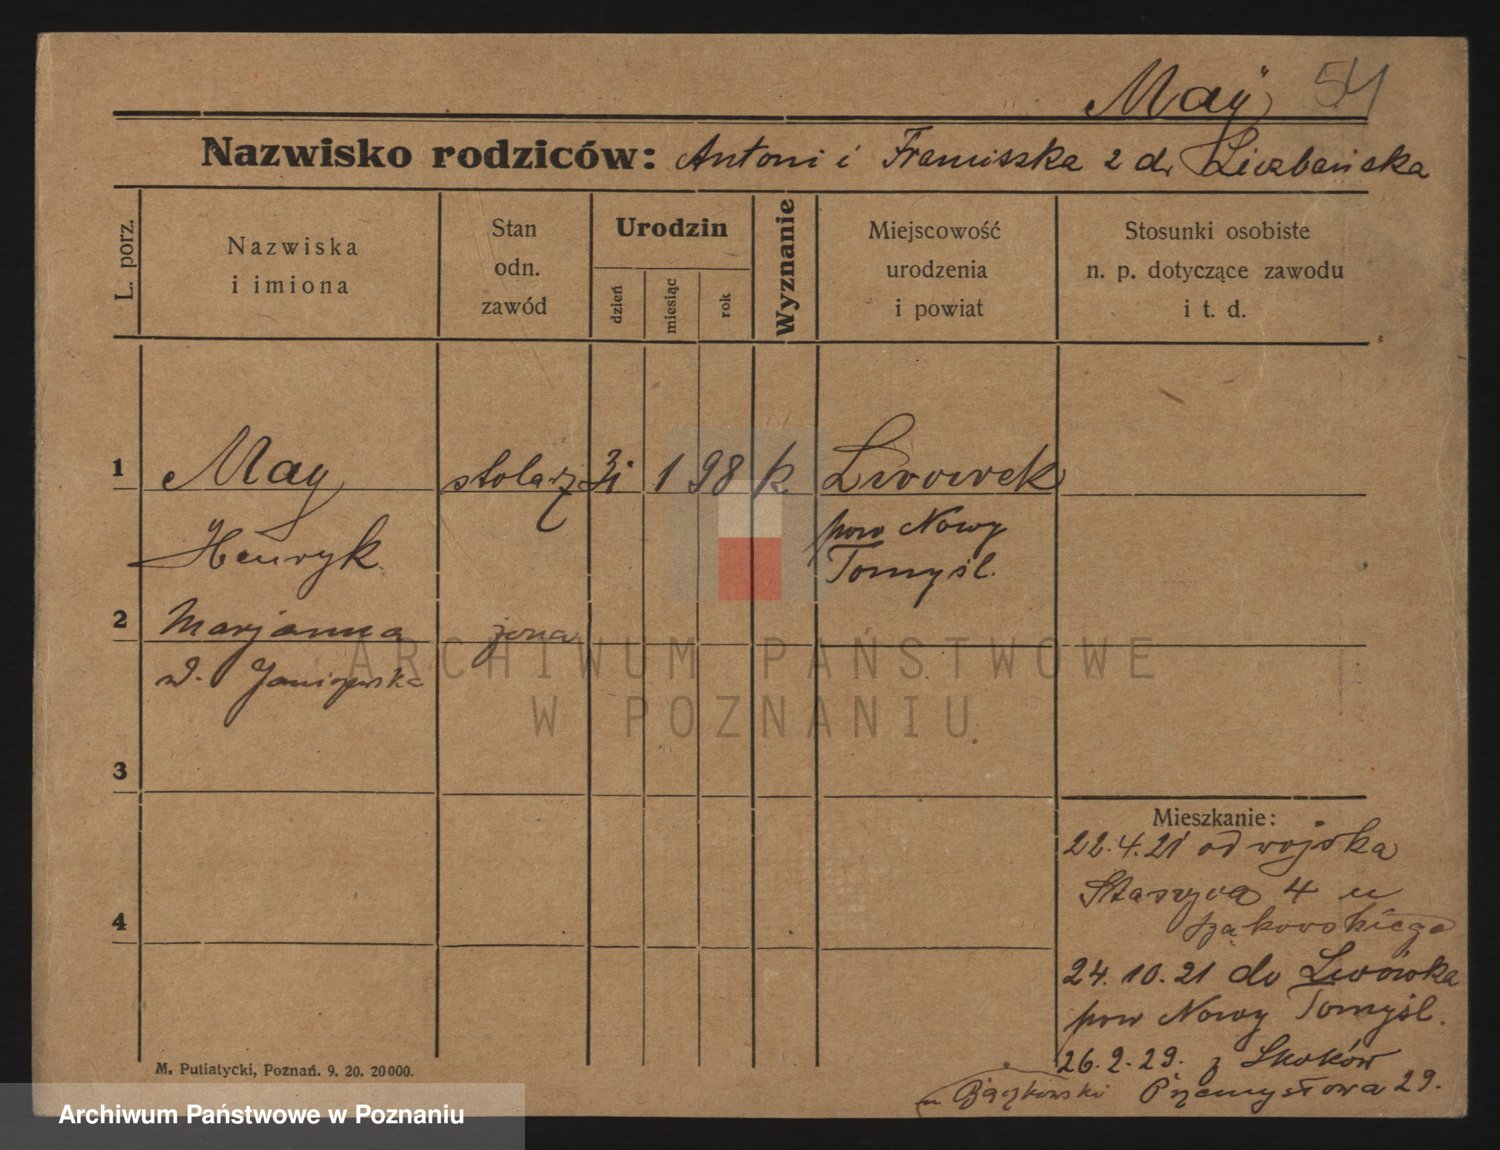 May 54
Nazwisko rodziców: Antoni i Franciszka z d. Liczbańska
L. porz.
Nazwiska
i imiona
Stan
odn.
zawód
Urodzin
dzień
miesiąc
rok
Wyznanie
Miejscowość
urodzenia
i powiat
Stosunki osobiste
n. p. dotyczące zawodu
i t. d.
1 May stolarz 31 1 98 k Lwowek
Henryk
pow Nowy
Tomyśl.
2 Marjanna żona
d.
3
4
Mieszkanie:
22.4.21 od wojska
Staszyca 4 u
24.10.21 do Lwówka
pow Nowy Tomyśl.
26.2.29. z Skoków
u Bączkowski Przemysłowa 29.
M. Putiatycki, Poznań. 9. 20. 20000.
ARCHIWUM PAŃSTWOWE
W POZNANIU
Archiwum Państwowe w Poznaniu